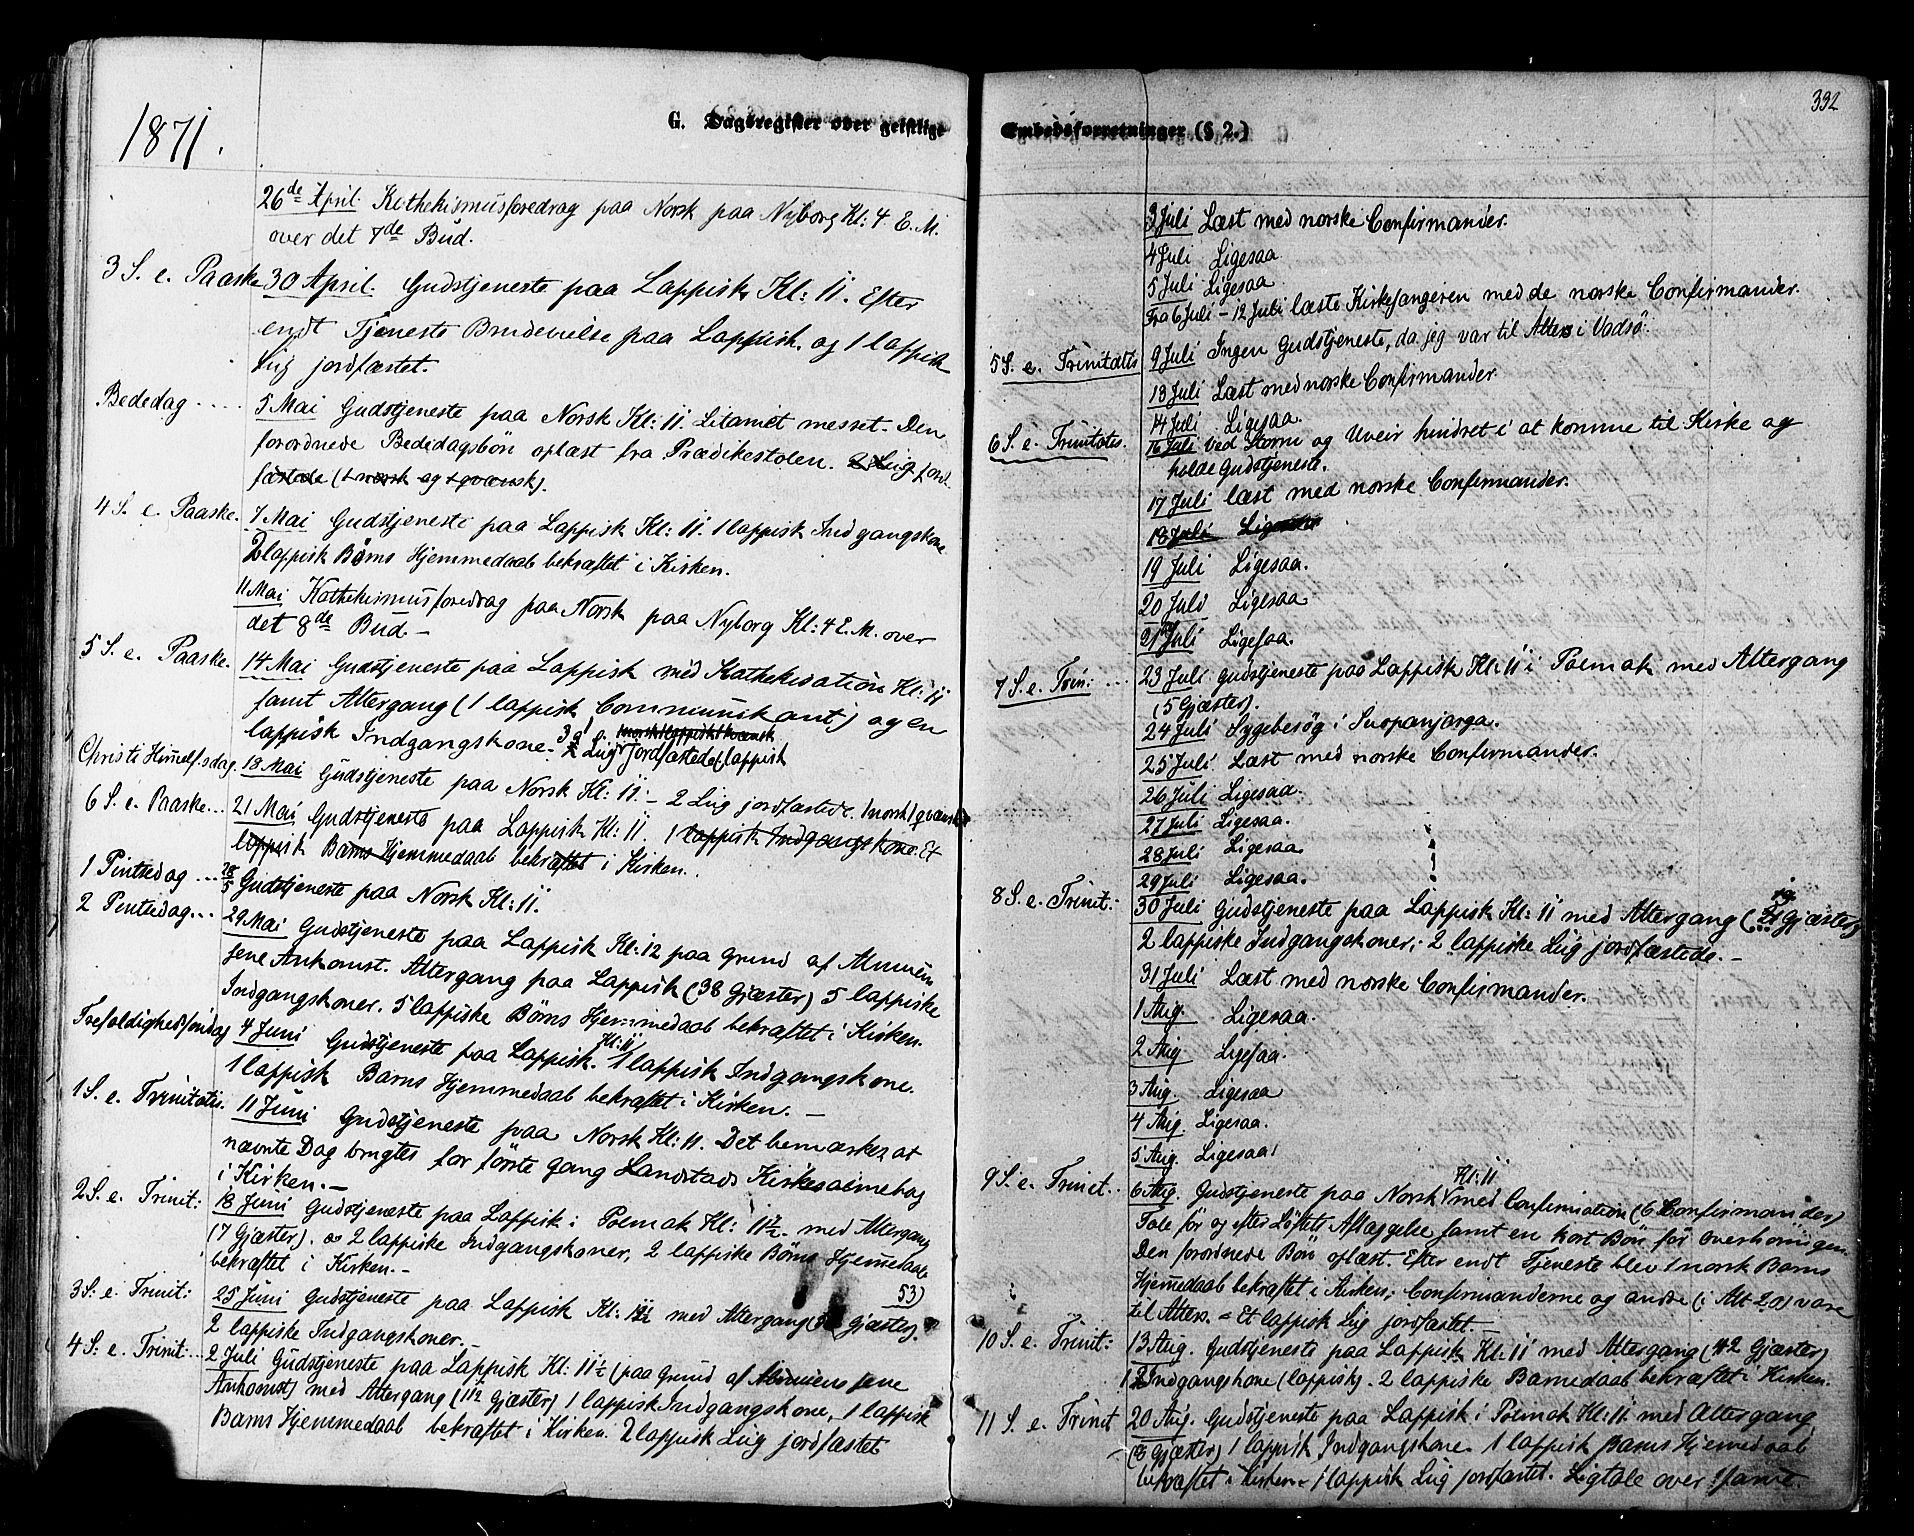 1871.
G. Dagsregister over geistlige
26de April. Kathekismusforedrag paa Norsk paa Nyborg Kl: 4 E. M.
over det 7de Bud.
3 S. e. Paaske 30 April. Gudstjeneste paa Lappisk Kl: 11. Efter
endt Tjeneste Brudevielse paa Lappisk. og 1 lappisk
Liig jordfæstet.
Bededag .... 5 Mai Gudstjeneste paa Norsk Kl: 11. Litaniet messet. Den
forordnede Bededagsbön oplæst fra Prædikestolen. 2 Liig jord-
fæstede (1 norsk og 1 qvænsk).
4 S. e. Paaske. 7 Mai Gudstjeneste paa Lappisk Kl: 11. 1 lappisk Indgangskone
2 lappisk Börns Hjemmedaab bekræftet i Kirken.
11 Mai Kathekismusforedrag paa Norsk paa Nyborg Kl: 4 E. M. over
det 8de Bud. -
5 S. e. Paaske. 14 Mai Gudstjeneste paa Lappisk med Kathekisation Kl: 11
samt Altergang (1 lappisk Communikant) og en
lappisk Indgangskone. Liig jordfæstede lappisk
Christi Himmelf.sdag. 18 Mai Gudstjeneste paa Norsk Kl: 11. - 2 Liig jordfæstede 1 norsk 1 qvænsk
6 S. e. Paaske... 21 Mai Gudstjeneste paa Lappisk Kl: 11. 1 lappisk Indgangskone. Et
lappisk Barns Hjemmedaab bekræftet i Kirken.
1 Pintsedag ... 28/5 Gudstjeneste paa Norsk Kl: 11.
2 Pintsedag... 29 Mai Gudstjeneste paa Lappisk Kl: 12 paa Grund af Almuens
sene Ankomst. Altergang paa Lappisk (38 Gjæster) 5 lappiske
Indgangskoner. 5 lappiske Börns Hjemmedaab bekræftet i Kirken.
Trefoldighedssöndag 4 Juni Gudstjeneste paa Lappisk. Kl: 11 1 lappisk Indgangskone.
1 lappisk Barns Hjemmedaab bekræftet i Kirken. -
1 S. e. Trinitatis. 11 Juni Gudstjeneste paa Norsk Kl: 11. Det bemærkes at
nævnte Dag brugtes for förste Gang Landstads Kirkesalmebog
i Kirken. -
2 S. e. Trinit: 18 Juni Gudstjeneste paa Lappisk i Polmak Kl: 11½ med Altergang
(7 Gjæster). 2 lappiske Indgangskoner, 2 lappiske Börns Hjemmedaab
bekræftet i Kirken. -
3 S: e. Trinit: 25 Juni Gudstjeneste paa Lappisk Kl: med Altergang (53) Gjæster.
2 lappiske Indgangskoner.
4 S: e. Trinit: .. 2 Juli Gudstjeneste paa Lappisk Kl: 11½ (paa Grund af Almuens sene
Ankomst) med Altergang (112 Gjæster) 1 lappisk Indgangskone, 1 lappisk
Barns Hjemmedaab bekræftet i Kirken. 2 lappisk Liig jordfæstet
332
Embedsforretninger (§ 2.)
3 Juli Læst med norske Confirmander.
4 Juli Ligesaa
5 Juli Ligesaa
Fra 6 Juli - 12 Juli læste Kirkesangeren med de norske Confirmander.
5 S. e. Trinitatis 9 Juli Ingen Gudstjeneste, da jeg var til Alters i Vadsö.
13 Juli Læst med norske Confirmander.
14 Juli Ligesaa.
6 S. e. Trinitatis. 16 Juli ved Storm og Uveir hindret i at komme til Kirke og
holde Gudstjeneste.
17 Juli læst med norske Confirmander.
18 Juli Ligesaa
19 Juli Ligesaa.
20 Juli Ligesaa
21 Juli Ligesaa.
7 S. e. Trin: ... 23 Juli Gudstjeneste paa Lappisk Kl: 11 i Polmak med Altergang
(5 Gjæster).
24 Juli Sygebesög i Suopanjarga.
25 Juli. Læst med norske Confirmander.
26 Juli Ligesaa.
27 Juli Ligesaa.
28 Juli Ligesaa
29 Juli Ligesaa.
8 S. e. Trinit: 30 Juli Gudstjeneste paa Lappisk Kl: 11 med Altergang ( Gjæster)
2 lappiske Indgangskoner, 2 lappiske Liig jordfæstede. -
31 Juli Læst med norske Confirmander.
1 Aug. Ligesaa.
2 Aug Ligesaa.
3 Aug. Ligesaa
4 Aug. Ligesaa.
5 Aug. Ligesaa
9 S. e. Trinit... 6 Aug. Gudstjeneste paa Norsk Kl: 11 med Confirmation (6 Confirmander)
Tale för og efter Löftets Aflæggelse samt en kort Bön för Overhöringen
Den forordnede Bön oplæst. Efter endt Tjeneste blev 1 norsk Barns
Hjemmedaab bekræftet i Kirken; Confirmanderne og andre (i Alt 20) vare
til Alters. = Et lappisk Liig jordfæstet. -
10 S. e. Trinit: 13 Aug. Gudstjeneste paa Lappisk Kl: 11 med Altergang (42 Gjæster)
Indgangskone (lappisk). 2 lappiske Barnedaab bekræftet i Kirken.
11 S. e. Trinit 20 Aug. Gudstjeneste paa Lappisk i Polmak Kl: 11 med Altergang
(8 Gjæster) 1 lappisk Indgangskone. 1 lappisk Barns Hjemmedaab
bekræftet i Kirken. 1 lappisk Liig jordfæstet. Ligtale over samme.